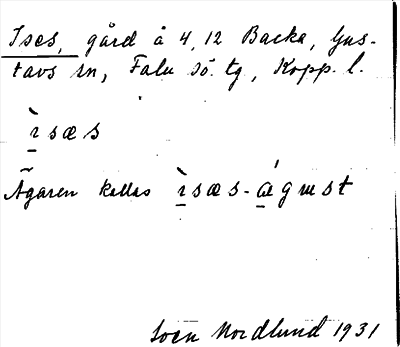 Ises, gård å 4, 12 Backa, Gus-
tavs sn, Falu sö. tg, Kopp. l.
ı̱̀sæs
Ägaren kallas ı̱̀sæs-ǽ̱gɯst
Sven Nordlund 1931